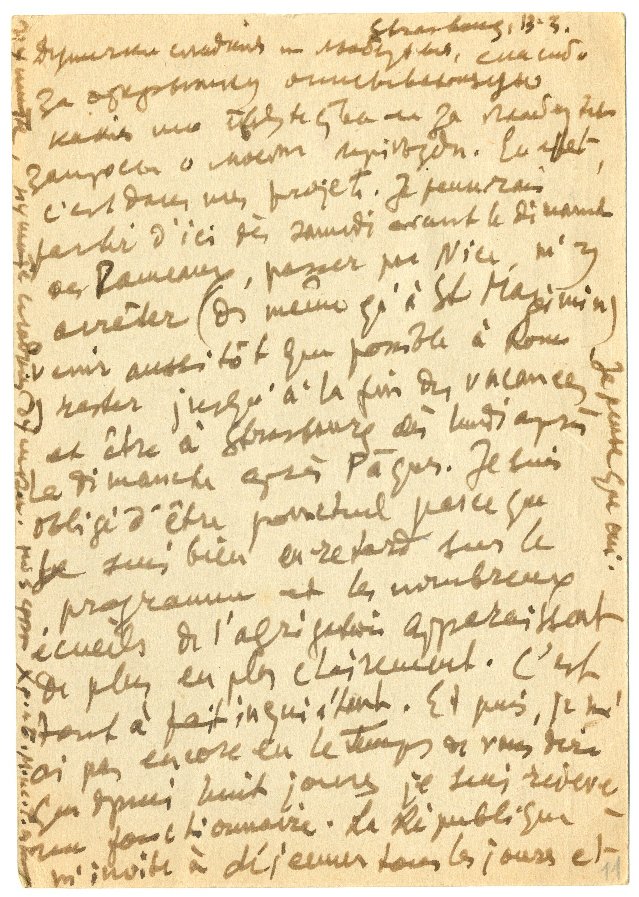 Strasbourg, 13-3.
Душички сладкия и любезныя, спасибо
за открытку описывающую
какия то чувства и за
запросы о моем приезде. En effet,
c'est dans mes projets. Je pourrais
partir d'ici dès samedi avant le dimanche
des Rameaux, passer par Nice, m'y
arrêter (de même qu'à St Maximin)
venir aussitôt que possible à
rester jusqu'à la fin des vacances
et être à Strasbourg dès lundi après
le dimanche après Pâques. Je suis
obligé d'être ponctuel parce que
je suis bien en retard sur le
programme et les nombreux
écueils de l'agrégation apparaissent
de plus en plus clairement. C'est
tout à fait inquiétant. Et puis, je n'
ai pas encore eu le temps de vous dire
que depuis huit jours je suis
un fonctionnaire. La République
m'invite à déjeuner tous les jours et
Je pense que oui.
11